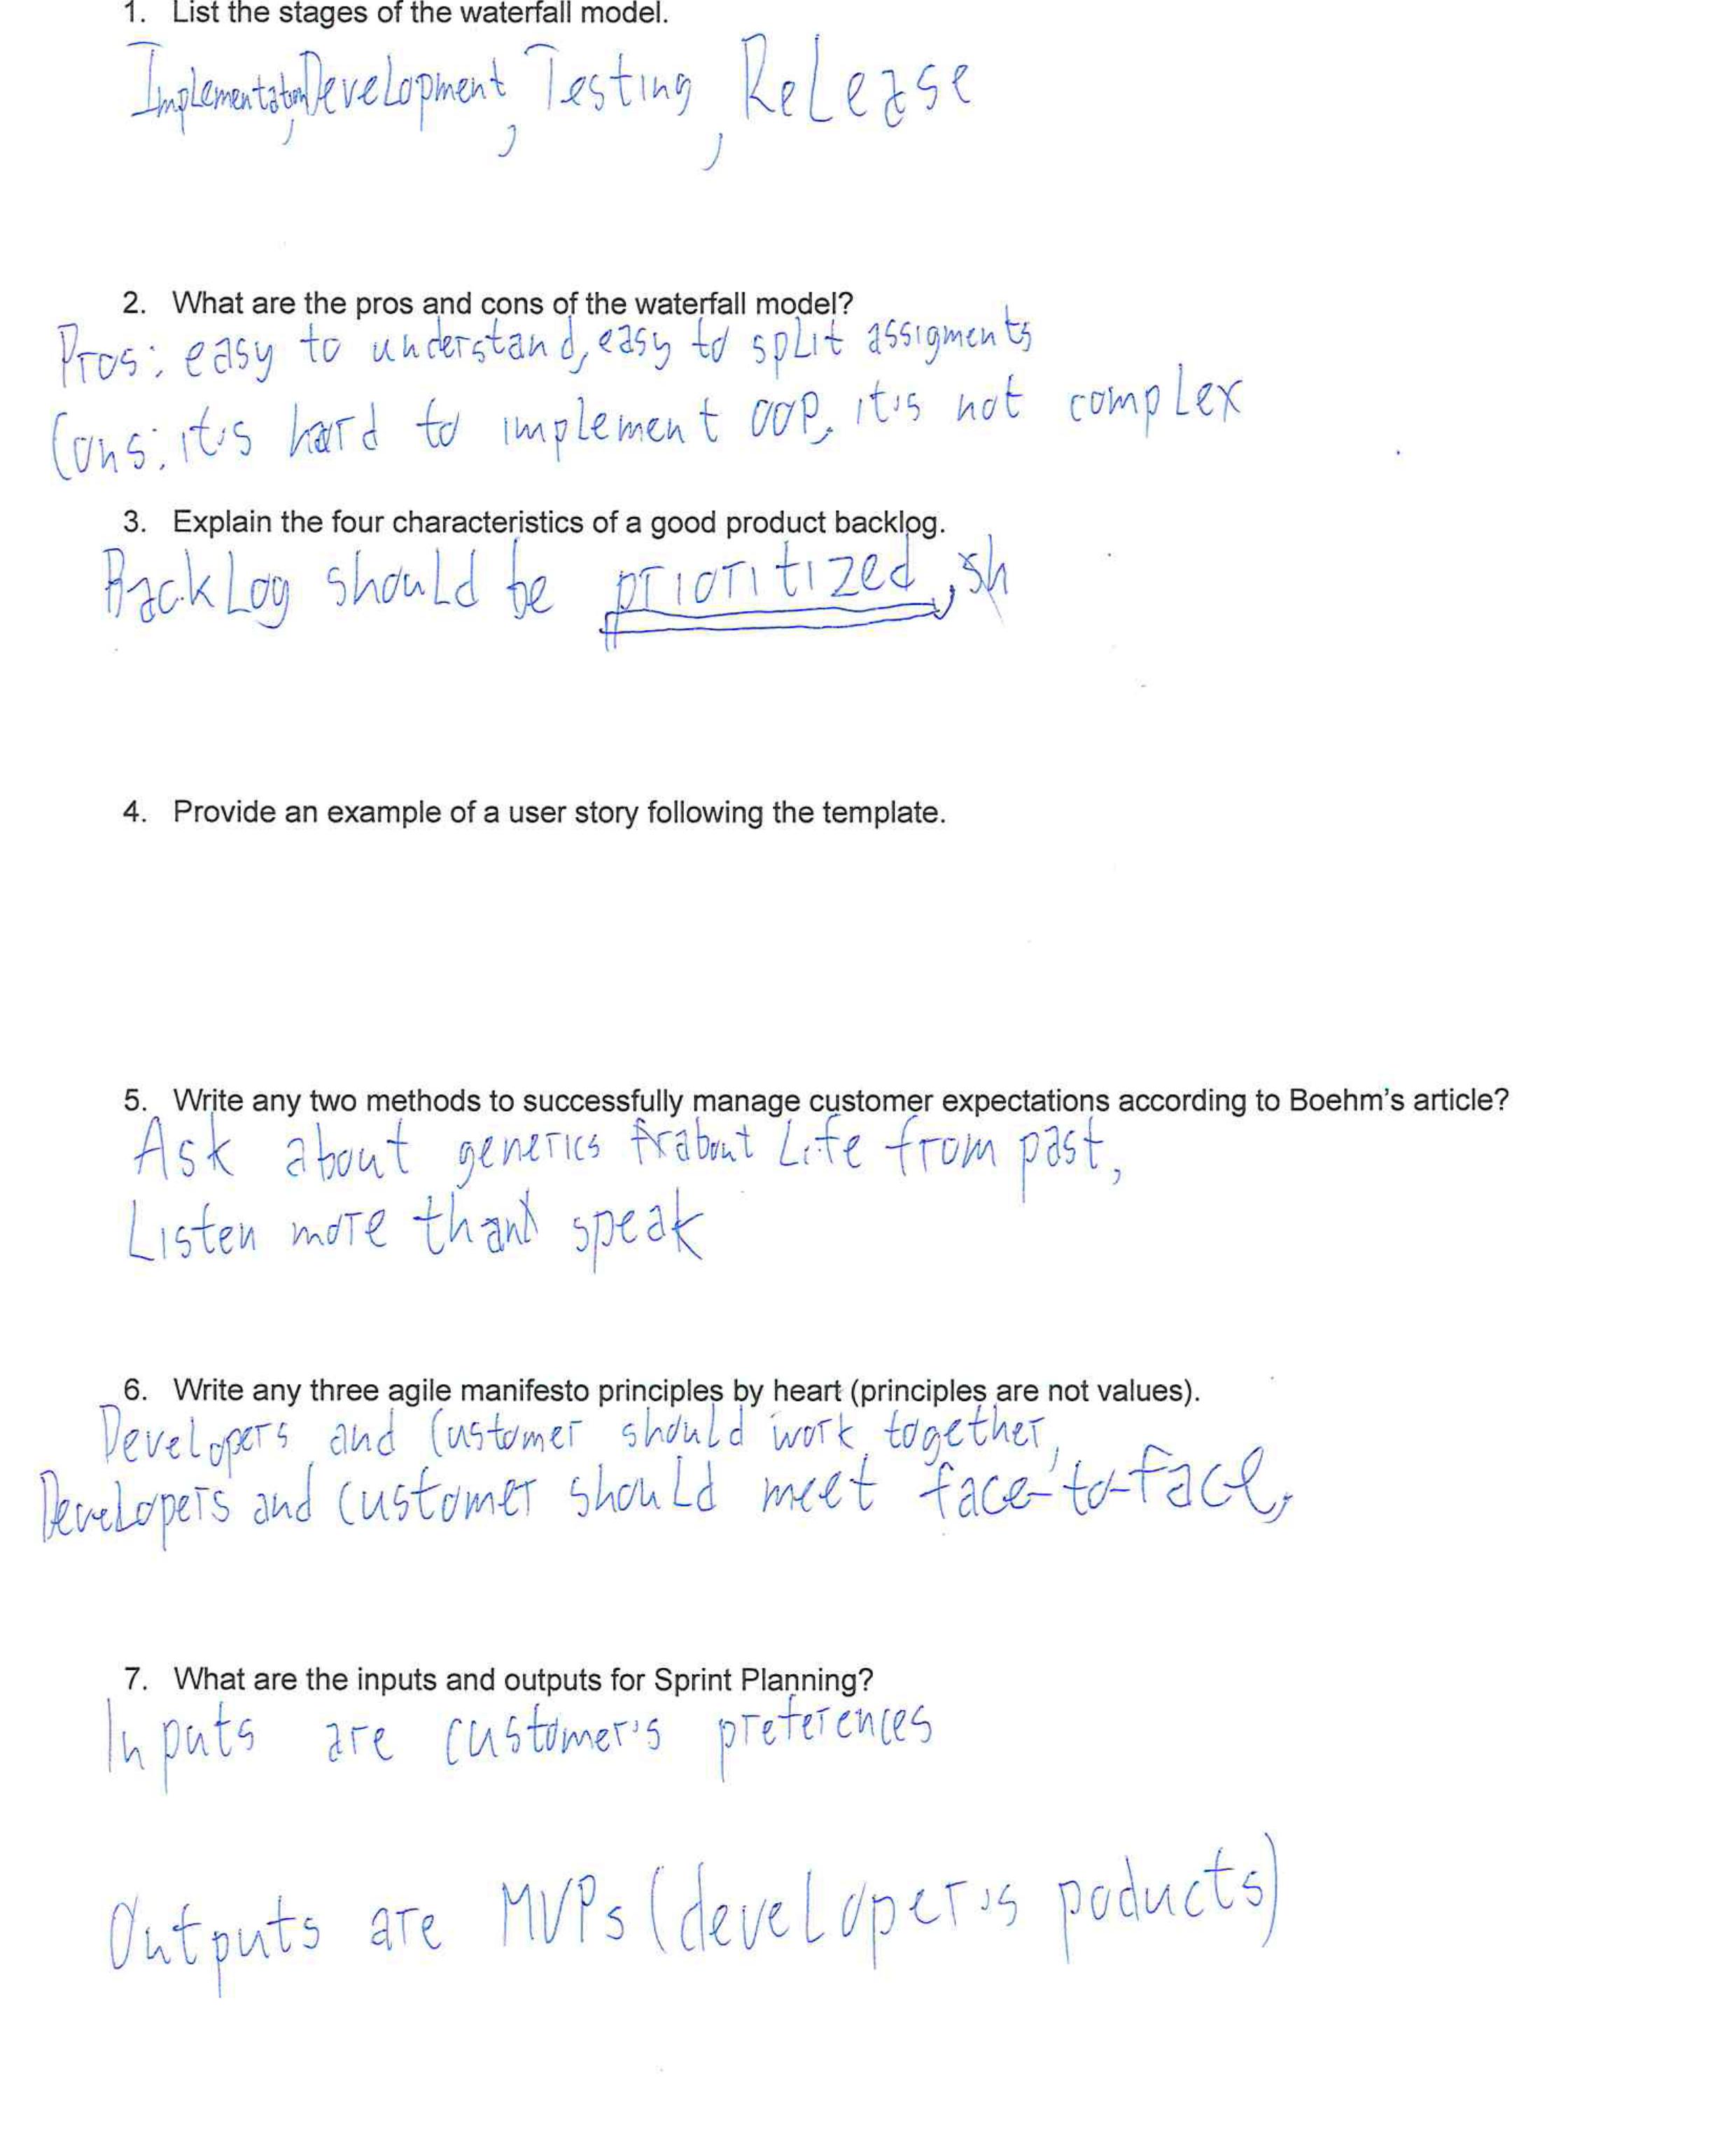 1. List the stages of the waterfall model.
Implementation, Development, Testing, Release
2. What are the pros and cons of the waterfall model?
Pros: easy to understand, easy to split assigments
Cons: it's hard to implement OOP, it's not complex
3. Explain the four characteristics of a good product backlog.
BackLog should be prioritized, sh
4. Provide an example of a user story following the template.
5. Write any two methods to successfully manage customer expectations according to Boehm's article?
Ask about generics about Life from past,
Listen more than speak
6. Write any three agile manifesto principles by heart (principles are not values).
Developers and Customer should work together,
Developers and customer should meet face-to-face,
7. What are the inputs and outputs for Sprint Planning?
Inputs are customer's preferences
Outputs are MVPs (developer's poducts)